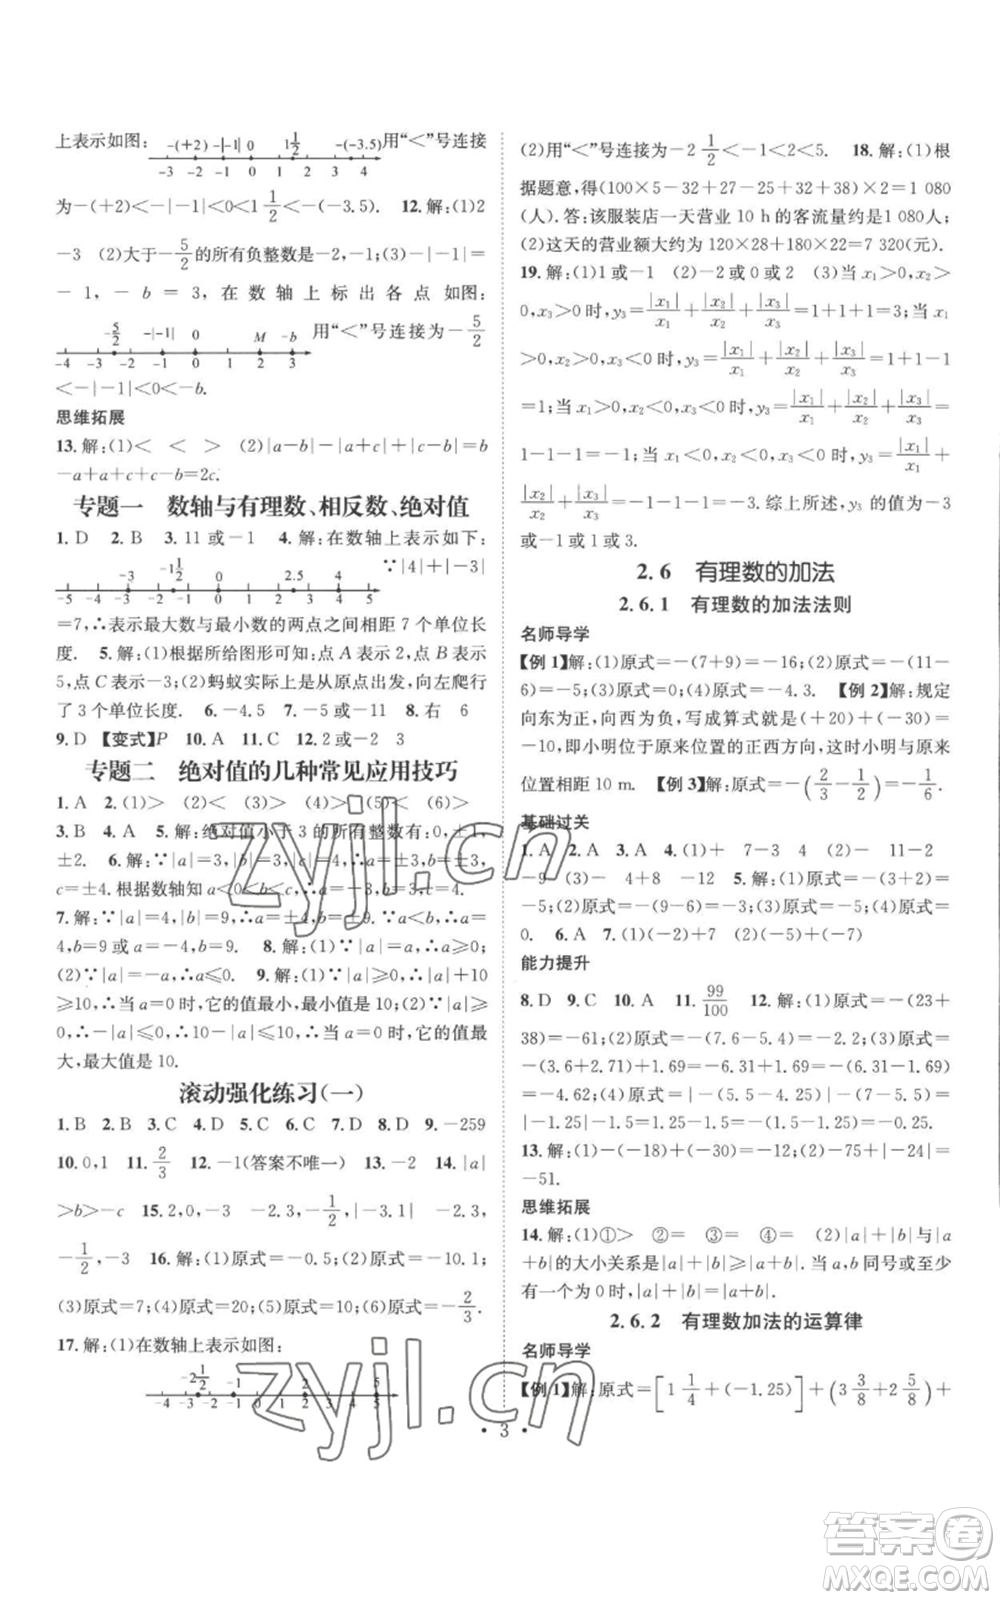 上表示如图: -(+2) -|-1| 0 1 1/2 -(-3.5) 用“<”号连接
-3 -2 -1 0 1 2 3 4
为-(+2)<-|-1|<0<1 1/2<-(-3.5). 12.解:(1)2
-3 (2)大于-5/2的所有负整数是-2,-1;(3)-|-1|=
-1,-b=3,在数轴上标出各点如图:
-5/2 -|-1| 0 M -b 用“<”号连接为-5/2
-4 -3 -2 -1 0 1 2 3
<-|-1|<0<-b.
思维拓展
13.解:(1)< < > (2)|a-b|-|a+c|+|c-b|=b
-a+a+c+c-b=2c.
专题一 数轴与有理数、相反数、绝对值
1.D 2.B 3.11或-1 4.解:在数轴上表示如下:
-3 -1 1/2 0 2.5 4 ∵|4|+|-3|
-5 -4 -3 -2 -1 0 1 2 3 4 5
=7,∴表示最大数与最小数的两点之间相距7个单位长
度. 5.解:(1)根据所给图形可知:点A表示-2,点B表示
5,点C表示-3;(2)蚂蚁实际上是从原点出发,向左爬行
了3个单位长度. 6.-4.5 7.5或-11 8.右 6
9.D 【变式】P 10.A 11.C 12.2或-2 3
专题二 绝对值的几种常见应用技巧
1.A 2.(1)> (2)< (3)> (4)> (5)< (6)>
3.B 4.A 5.解:绝对值小于3的所有整数有:0,±1,
±2. 6.解:∵|a|=3,|b|=3,|c|=4,∴a=±3,b=±3,
c=±4.根据数轴知a<0<b<c,∴a=-3,b=3,c=4.
7.解:∵|a|=4,|b|=9,∴a=±4,b=±9.∵a<b,∴a=
4,b=9或a=-4,b=9. 8.解:(1)∵|a|=a,∴a≥0;
(2)∵|a|=-a,∴a≤0. 9.解:(1)∵|a|≥0,∴|a|+10
≥10,∴当a=0时,它的值最小,最小值是10;(2)∵|a|≥
0,∴-|a|≤0,∴10-|a|≤10,∴当a=0时,它的值最
大,最大值是10.
滚动强化练习(一)
1.B 2.B 3.C 4.C 5.C 6.B 7.D 8.D 9.-259
10.0,1 11.2/3 12.-1(答案不唯一) 13.-2 14.|a|
>b>-c 15.2,0,-3 -2.3,-1/2,-|-3.1| -2.3,
-1/2,-3 16.解:(1)原式=-0.5;(2)原式=-10.1;
(3)原式=7;(4)原式=20;(5)原式=10;(6)原式=-2/3.
17.解:(1)在数轴上表示如图:
-2 1/2 -1 0 2 5
-4 -3 -2 -1 0 1 2 3 4 5
(2)用“<”号连接为-2 1/2<-1<0<2<5. 18.解:(1)根
据题意,得(100×5-32+27-25+32+38)×2=1 080
(人).答:该服装店一天营业10 h的客流量约是1 080人;
(2)这天的营业额大约为120×28+180×22=7 320(元).
19.解:(1)1或-1 (2)-2或0或2 (3)当x₁>0,x₂>
0,x₃>0时,y₃=|x₁|/x₁+|x₂|/x₂+|x₃|/x₃=1+1+1=3;当x₁
>0,x₂>0,x₃<0时,y₃=|x₁|/x₁+|x₂|/x₂+|x₃|/x₃=1+1-1
=1;当x₁>0,x₂<0,x₃<0时,y₃=|x₁|/x₁+|x₂|/x₂+|x₃|/x₃=
1-1-1=-1;当x₁<0,x₂<0,x₃<0时,y₃=|x₁|/x₁+
|x₂|/x₂+|x₃|/x₃=-1-1-1=-3.综上所述,y₃的值为-3
或-1或1或3.
2.6 有理数的加法
2.6.1 有理数的加法法则
名师导学
【例1】解:(1)原式=-(7+9)=-16;(2)原式=-(11-
6)=-5;(3)原式=0;(4)原式=-4.3. 【例2】解:规定
向东为正,向西为负,写成算式就是(+20)+(-30)=
-10,即小明位于原来位置的正西方向,这时小明与原来
位置相距10 m. 【例3】解:原式=-(2/3-1/2)=-1/6.
基础过关
1.A 2.A 3.A 4.(1)+ 7-3 4 (2)- 11-2
-9 (3)- 4+8 -12 5.解:(1)原式=-(3+2)=
-5;(2)原式=-(9-6)=-3;(3)原式=-2;(4)原式=
0. 6.A 7.(1)(-2)+7 (2)(-6)+(-7)
能力提升
8.D 9.C 10.A 11.99/100 12.解:(1)原式=-(23+
38)=-61;(2)原式=-(5.6-3.4)=-2.2;(3)原式=
-(3.6+2.71)+1.69=-6.31+1.69=-(6.31-1.69)
=-4.62;(4)原式=|-(5.5-4.25)|+[-(7-5.5)]=
|-1.25|+(-1.5)=1.25+(-1.5)=-0.25.
13.解:(1)-(-18)+(-30)=-12;(2)-15+|-24|=
-51.
思维拓展
14.解:(1)①> ②= ③= ④= (2)|a|+|b|与|a
+b|的大小关系是|a|+|b|≥|a+b|.当a,b同号或至少
有一个为0时,|a|+|b|=|a+b|.
2.6.2 有理数加法的运算律
名师导学
【例1】解:原式=[1 1/4+(-1.25)]+(3 3/8+2 5/8)+
• 3 •
zyjl.cn
zyjl.cn
答案圈
MXQE.COM